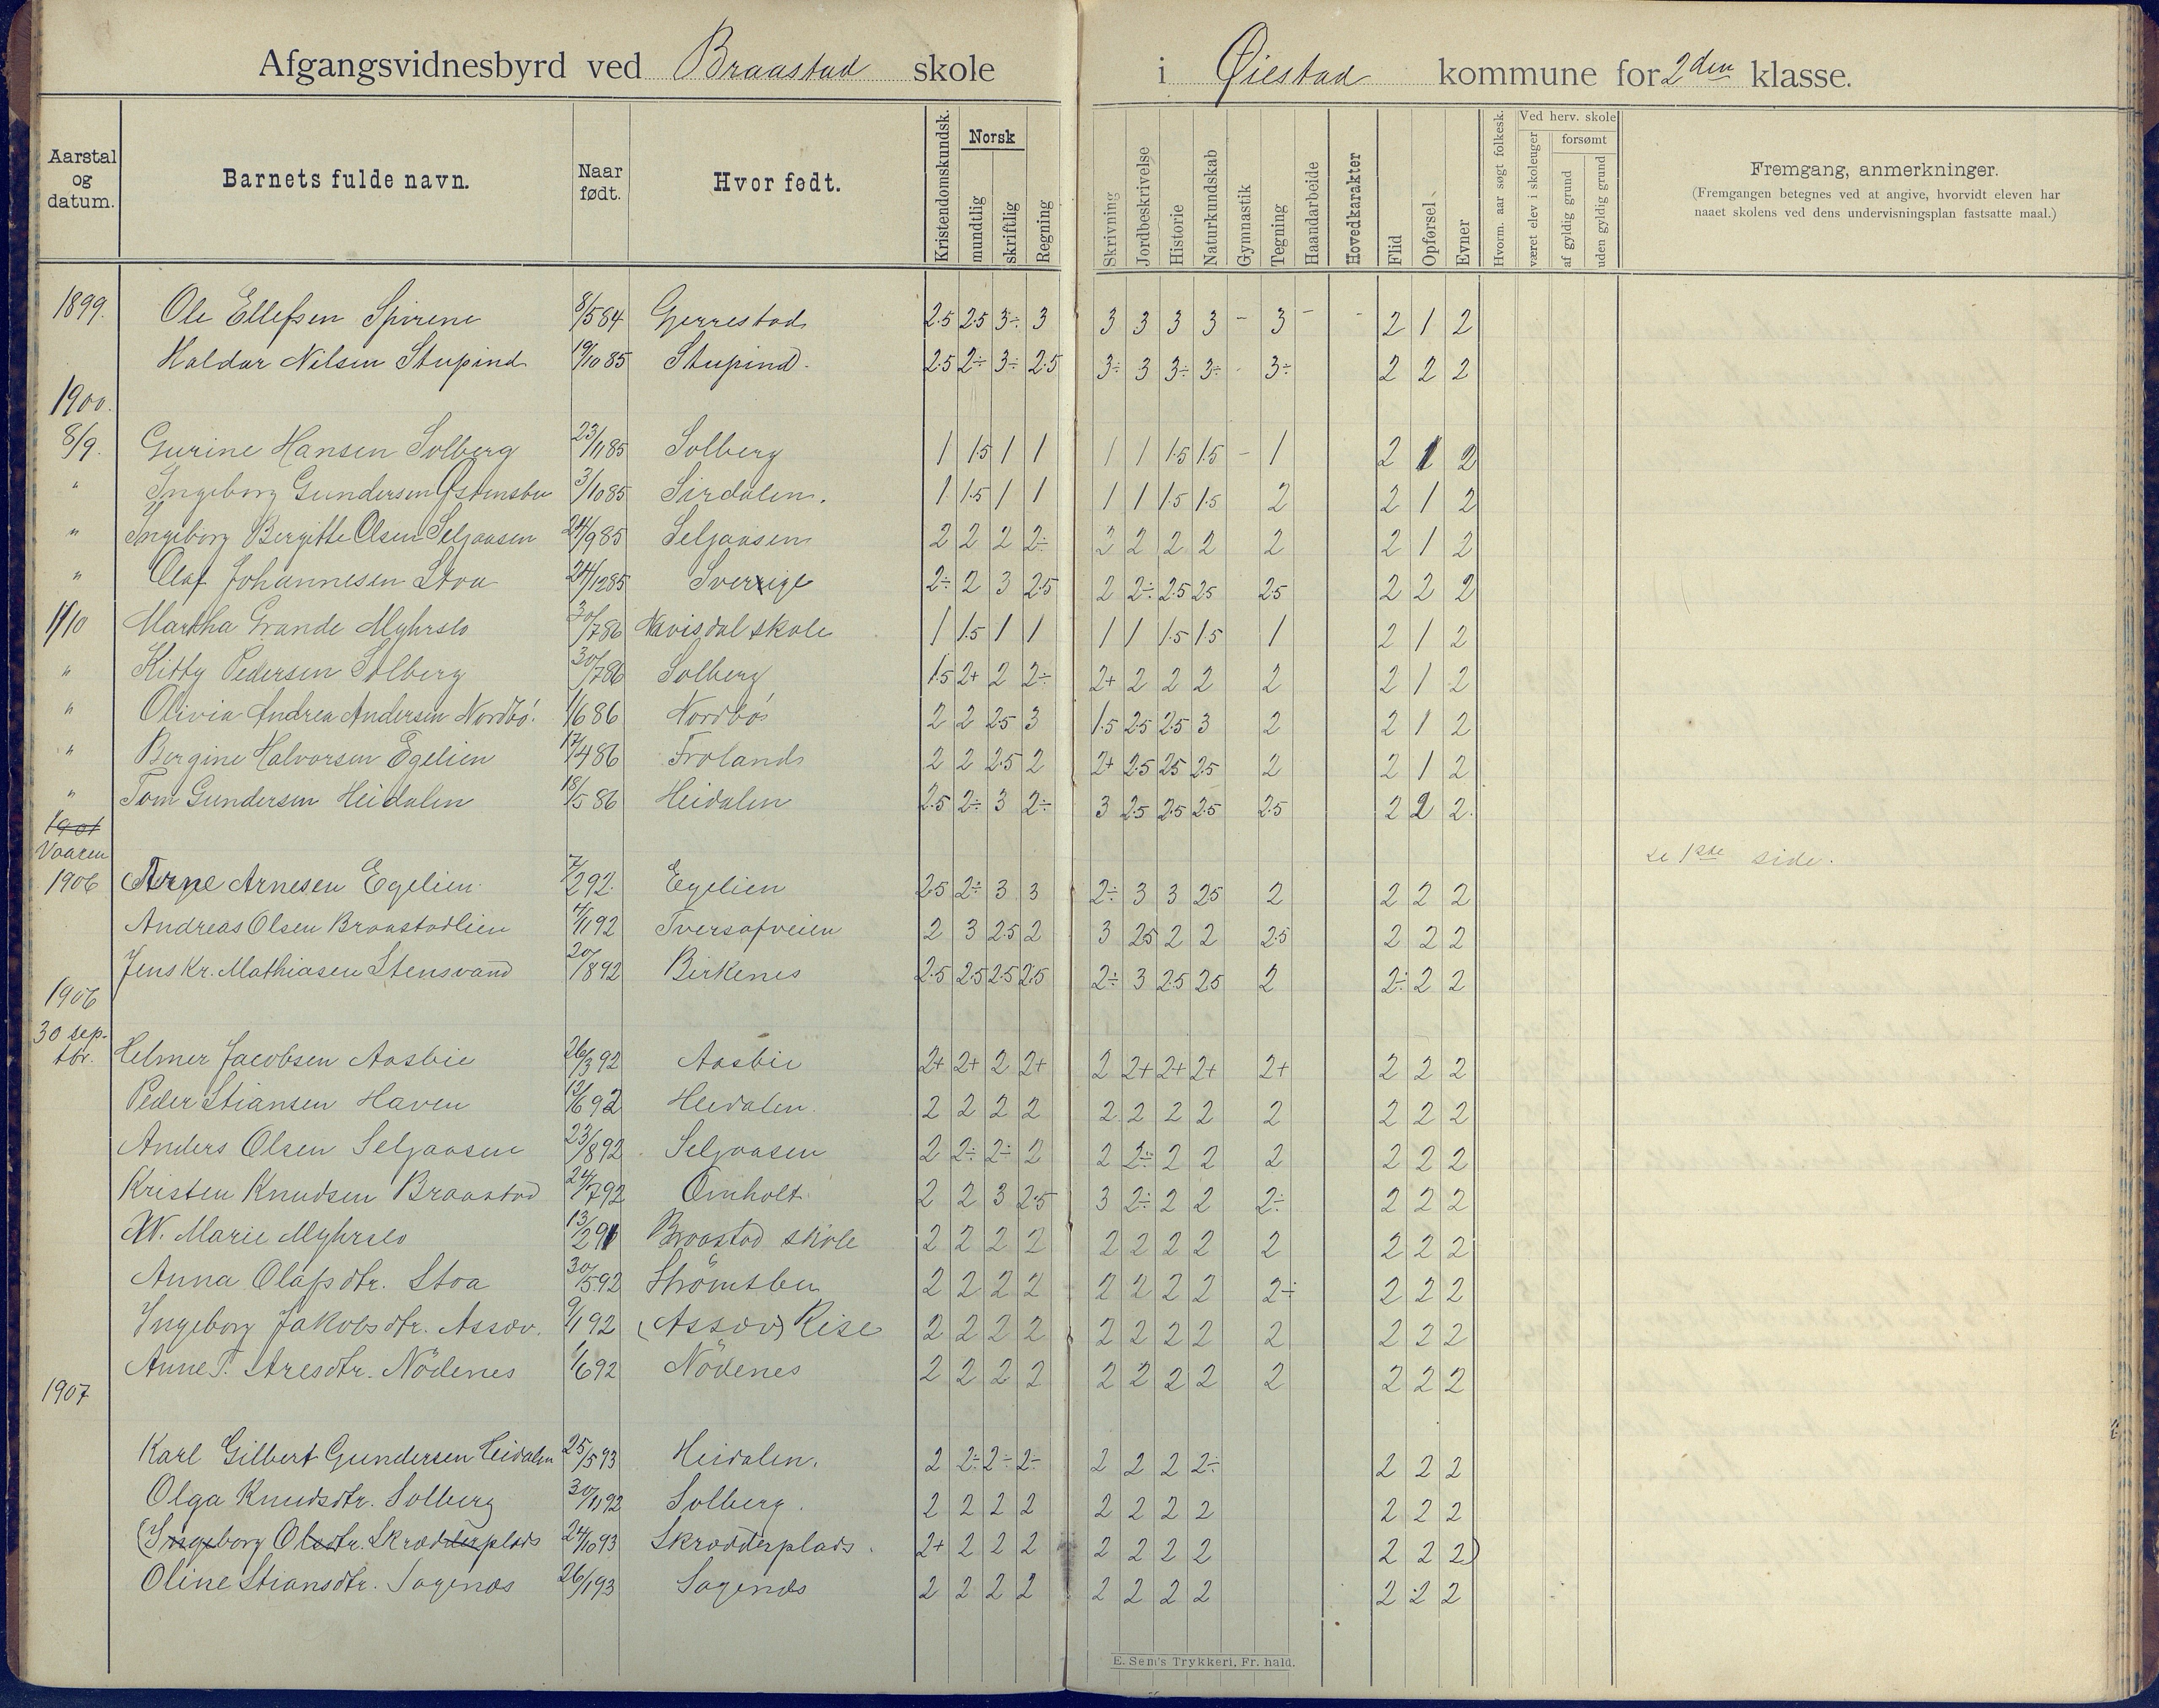 Afgangsvidnesbyrd ved Braastad skole i Øiestad kommune for 2den klasse.
Aarstal og datum.
Barnets fulde navn.
Naar født.
Hvor født.
Kristendomskundsk.
Norsk
mundtlig
skriftlig
Regning
Skrivning
Jordbeskrivelse
Historie
Naturkundskab
Gymnastik
Tegning
Haandarbeide
Hovedkarakter
Flid
Opførsel
Evner
Hvorm. aar søgt folkesk.
Ved herv. skole
været elev i skoleuger
forsømt
af gyldig grund
uden gyldig grund
Fremgang, anmerkninger.
(Fremgangen betegnes ved at angive, hvorvidt eleven har
naaet skolens ved dens undervisningsplan fastsatte maal.)
1899. Ole Ellefsen Spirene 8/5 84 Gjerrestad 2.5 2.5 3÷ 3 3 3 3 3 - 3 - - 2 1 2
Haldor Nilsen Stupind 19/10 85 Stupind. 2.5 2÷ 3÷ 2.5 3÷ 3 3÷ 3÷ - 3÷ 2 2 2
1900.
8/9. Gurine Hansen Solberg 23/11 85 Solberg 1 1.5 1 1 1 1 1.5 1.5 - 1 2 1 2
" Ingeborg Gundersen 3/10 85 Sirdalen. 1 1.5 1 1 1 1 1.5 1.5 2 2 1 2
" Ingeborg Bergitte Olsen Seljaasen 24/9 85 Seljaasen 2 2 2 2÷ 2 2 2 2 2 2 1 2
" Olaf Johannesen Stoa 24/12 85 Sverige 2÷ 2 3 2.5 2 2÷ 2.5 2.5 2.5 2 2 2
1/10 Martha Grande Myhrslo 30/7 86 Navisdal skole 1 1.5 1 1 1 1 1.5 1.5 1 2 1 2
" Kitty Pedersen Solberg 30/7 86 Solberg 1.5 2+ 2 2÷ 2+ 2 2 2 2 2 1 2
" Olivia Andrea Andersen Nordbö. 1/6 86 Nordbö 2 2 2.5 3 1.5 2.5 2.5 3 2 2 1 2
" Bergine Halvorsen Egelien 17/4 86 Froland 2 2 2.5 2 2+ 2.5 2.5 2.5 2 2 1 2
" Tom Gundersen Heidalen 18/5 86 Heidalen 2.5 2÷ 3 2÷ 3 2.5 2.5 2.5 2.5 2 2 2.
1901
Vaaren se 1ste side.
1906 Arne Arnesen Egelien 7/2 92. Egelien 2.5 2÷ 3 3 2÷ 3 3 2.5 2 2 2 2
Andreas Olsen Braastadlien 4/11 92 Tversafveien 2 3 2.5 2 3 2.5 2 2 2.5 2 2 2
Jens Kr. Mathiasen Stensvand 20/8 92 Birkenes 2.5 2.5 2.5 2.5 2÷ 3 2.5 2.5 2 2÷ 2 2
1906
30 sep-
tbr. Helmer Jacobsen Aasbie 26/3 92 Aasbie 2+ 2+ 2 2+ 2 2+ 2+ 2+ 2+ 2 2 2
Peder Stiansen Haven 12/6 92 Heidalen. 2 2 2 2 2 2 2 2 2 2 2 2
Anders Olsen Seljaasen 23/8 92 Seljaasen 2 2÷ 2÷ 2 2 2÷ 2 2 2 2 2 2
Kristen Knudsen Braastad 24/7 92 Omholt 2 2 3 2.5 3 2÷ 2 2 2÷ 2 2 2
N. Marie Myhrslo 13/2 91 Braastad skole 2 2 2 2 2 2 2 2 2 2 2 2
Anna Olafsdtr. Stoa 30/5 92 Strömsbu 2 2 2 2 2 2 2 2 2÷ 2 2 2
Ingeborg Jakobsdtr. Assæv. 9/1 92 (Assæv) Rise 2 2 2 2 2 2 2 2 2 2 2 2
Anne T. Aresdtr. Nödenes 1/6 92 Nödenes 2 2 2 2 2 2 2 2 2 2 2 2
1907
Karl Gilbert Gundersen Heidalen 25/5 93 Heidalen. 2 2÷ 2÷ 2÷ 2 2 2 2÷ 2 2 2
Olga Knudsdtr. Solberg 30/11 92 Solberg. 2 2 2 2 2 2 2 2 2 2 2
(Ingeborg Olsdtr. Skrædderplads 24/10 93 Skrædderplads. 2+ 2 2 2 2 2 2 2 2 2 2)
Oline Stiansdtr. Sagenæs 26/1 93 Sagenæs 2 2 2 2 2 2 2 2 2 2 2
E. Sem's Trykkeri, Fr. hald.